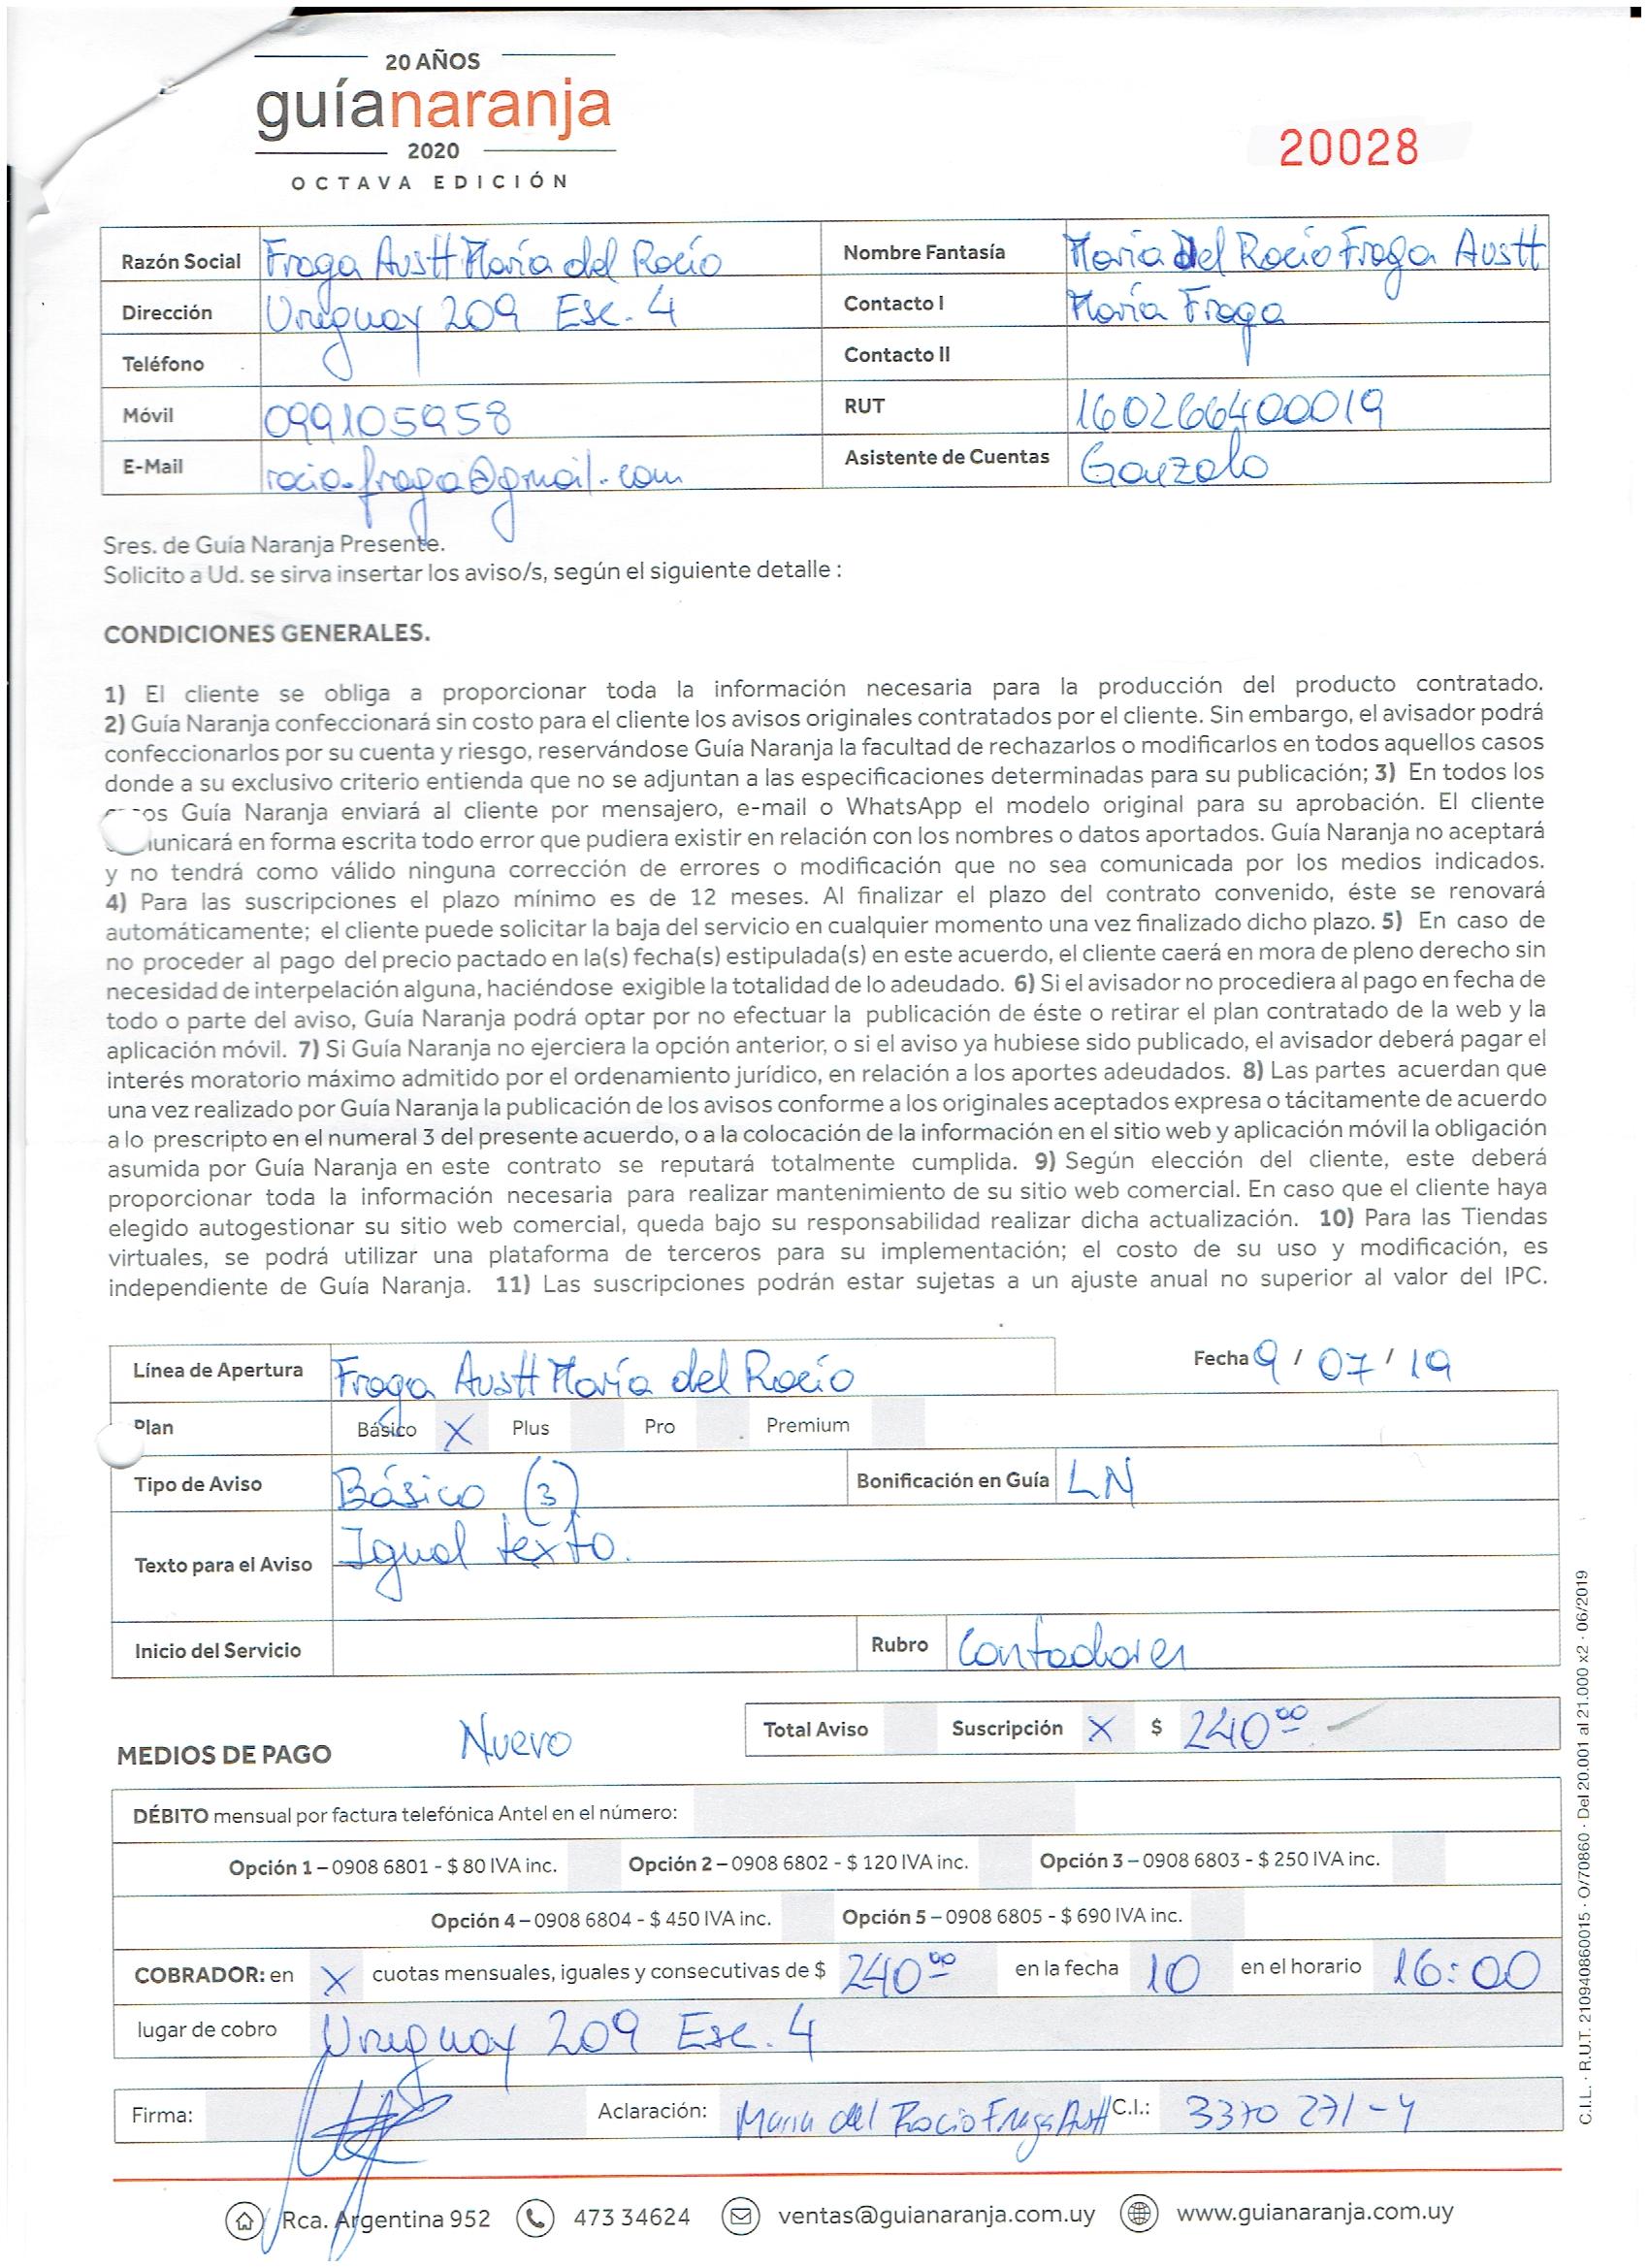 20 AÑOS
guíanaranja
2020
OCTAVA EDICIÓN
20028
Razón Social Fraga Austt María del Rocío Nombre Fantasía María Del Rocío Fraga Austt
Dirección Uruguay 209 Esc. 4 Contacto I María Fraga
Teléfono Contacto II
Móvil 099105958 RUT 160266400019
E-Mail rocio.fraga@gmail.com Asistente de Cuentas Gonzalo
Sres. de Guía Naranja Presente.
Solicito a Ud. se sirva insertar los aviso/s, según el siguiente detalle :
CONDICIONES GENERALES.
1) El cliente se obliga a proporcionar toda la información necesaria para la producción del producto contratado.
2) Guía Naranja confeccionará sin costo para el cliente los avisos originales contratados por el cliente. Sin embargo, el avisador podrá
confeccionarlos por su cuenta y riesgo, reservándose Guía Naranja la facultad de rechazarlos o modificarlos en todos aquellos casos
donde a su exclusivo criterio entienda que no se adjuntan a las especificaciones determinadas para su publicación; 3) En todos los
os Guía Naranja enviará al cliente por mensajero, e-mail o WhatsApp el modelo original para su aprobación. El cliente
unicará en forma escrita todo error que pudiera existir en relación con los nombres o datos aportados. Guía Naranja no aceptará
y no tendrá como válido ninguna corrección de errores o modificación que no sea comunicada por los medios indicados.
4) Para las suscripciones el plazo mínimo es de 12 meses. Al finalizar el plazo del contrato convenido, éste se renovará
automáticamente; el cliente puede solicitar la baja del servicio en cualquier momento una vez finalizado dicho plazo. 5) En caso de
no proceder al pago del precio pactado en la(s) fecha(s) estipulada(s) en este acuerdo, el cliente caerá en mora de pleno derecho sin
necesidad de interpelación alguna, haciéndose exigible la totalidad de lo adeudado. 6) Si el avisador no procediera al pago en fecha de
todo o parte del aviso, Guía Naranja podrá optar por no efectuar la publicación de éste o retirar el plan contratado de la web y la
aplicación móvil. 7) Si Guía Naranja no ejerciera la opción anterior, o si el aviso ya hubiese sido publicado, el avisador deberá pagar el
interés moratorio máximo admitido por el ordenamiento jurídico, en relación a los aportes adeudados. 8) Las partes acuerdan que
una vez realizado por Guía Naranja la publicación de los avisos conforme a los originales aceptados expresa o tácitamente de acuerdo
a lo prescripto en el numeral 3 del presente acuerdo, o a la colocación de la información en el sitio web y aplicación móvil la obligación
asumida por Guía Naranja en este contrato se reputará totalmente cumplida. 9) Según elección del cliente, este deberá
proporcionar toda la información necesaria para realizar mantenimiento de su sitio web comercial. En caso que el cliente haya
elegido autogestionar su sitio web comercial, queda bajo su responsabilidad realizar dicha actualización. 10) Para las Tiendas
virtuales, se podrá utilizar una plataforma de terceros para su implementación; el costo de su uso y modificación, es
independiente de Guía Naranja. 11) Las suscripciones podrán estar sujetas a un ajuste anual no superior al valor del IPC.
Línea de Apertura Fraga Austt María del Rocío Fecha 9 / 07 / 19
Plan Básico X Plus Pro Premium
Tipo de Aviso Básico (3) Bonificación en Guía LN
Texto para el Aviso Igual texto.
Inicio del Servicio Rubro Contadores
MEDIOS DE PAGO Nuevo Total Aviso Suscripción X $ 240 00
DÉBITO mensual por factura telefónica Antel en el número:
Opción 1 – 0908 6801 - $ 80 IVA inc. Opción 2 – 0908 6802 - $ 120 IVA inc. Opción 3 – 0908 6803 - $ 250 IVA inc.
Opción 4 – 0908 6804 - $ 450 IVA inc. Opción 5 – 0908 6805 - $ 690 IVA inc.
COBRADOR: en X cuotas mensuales, iguales y consecutivas de $ 240 00 en la fecha 10 en el horario 16:00
lugar de cobro Uruguay 209 Esc. 4
Firma: Aclaración: Maria del Rocio Fraga Austt C.I.: 3370 271-4
Rca. Argentina 952 473 34624 ventas@guianaranja.com.uy www.guianaranja.com.uy
C.I.L. · R.U.T. 210940860015 · O/70860 · Del 20.001 al 21.000 x2 · 06/2019